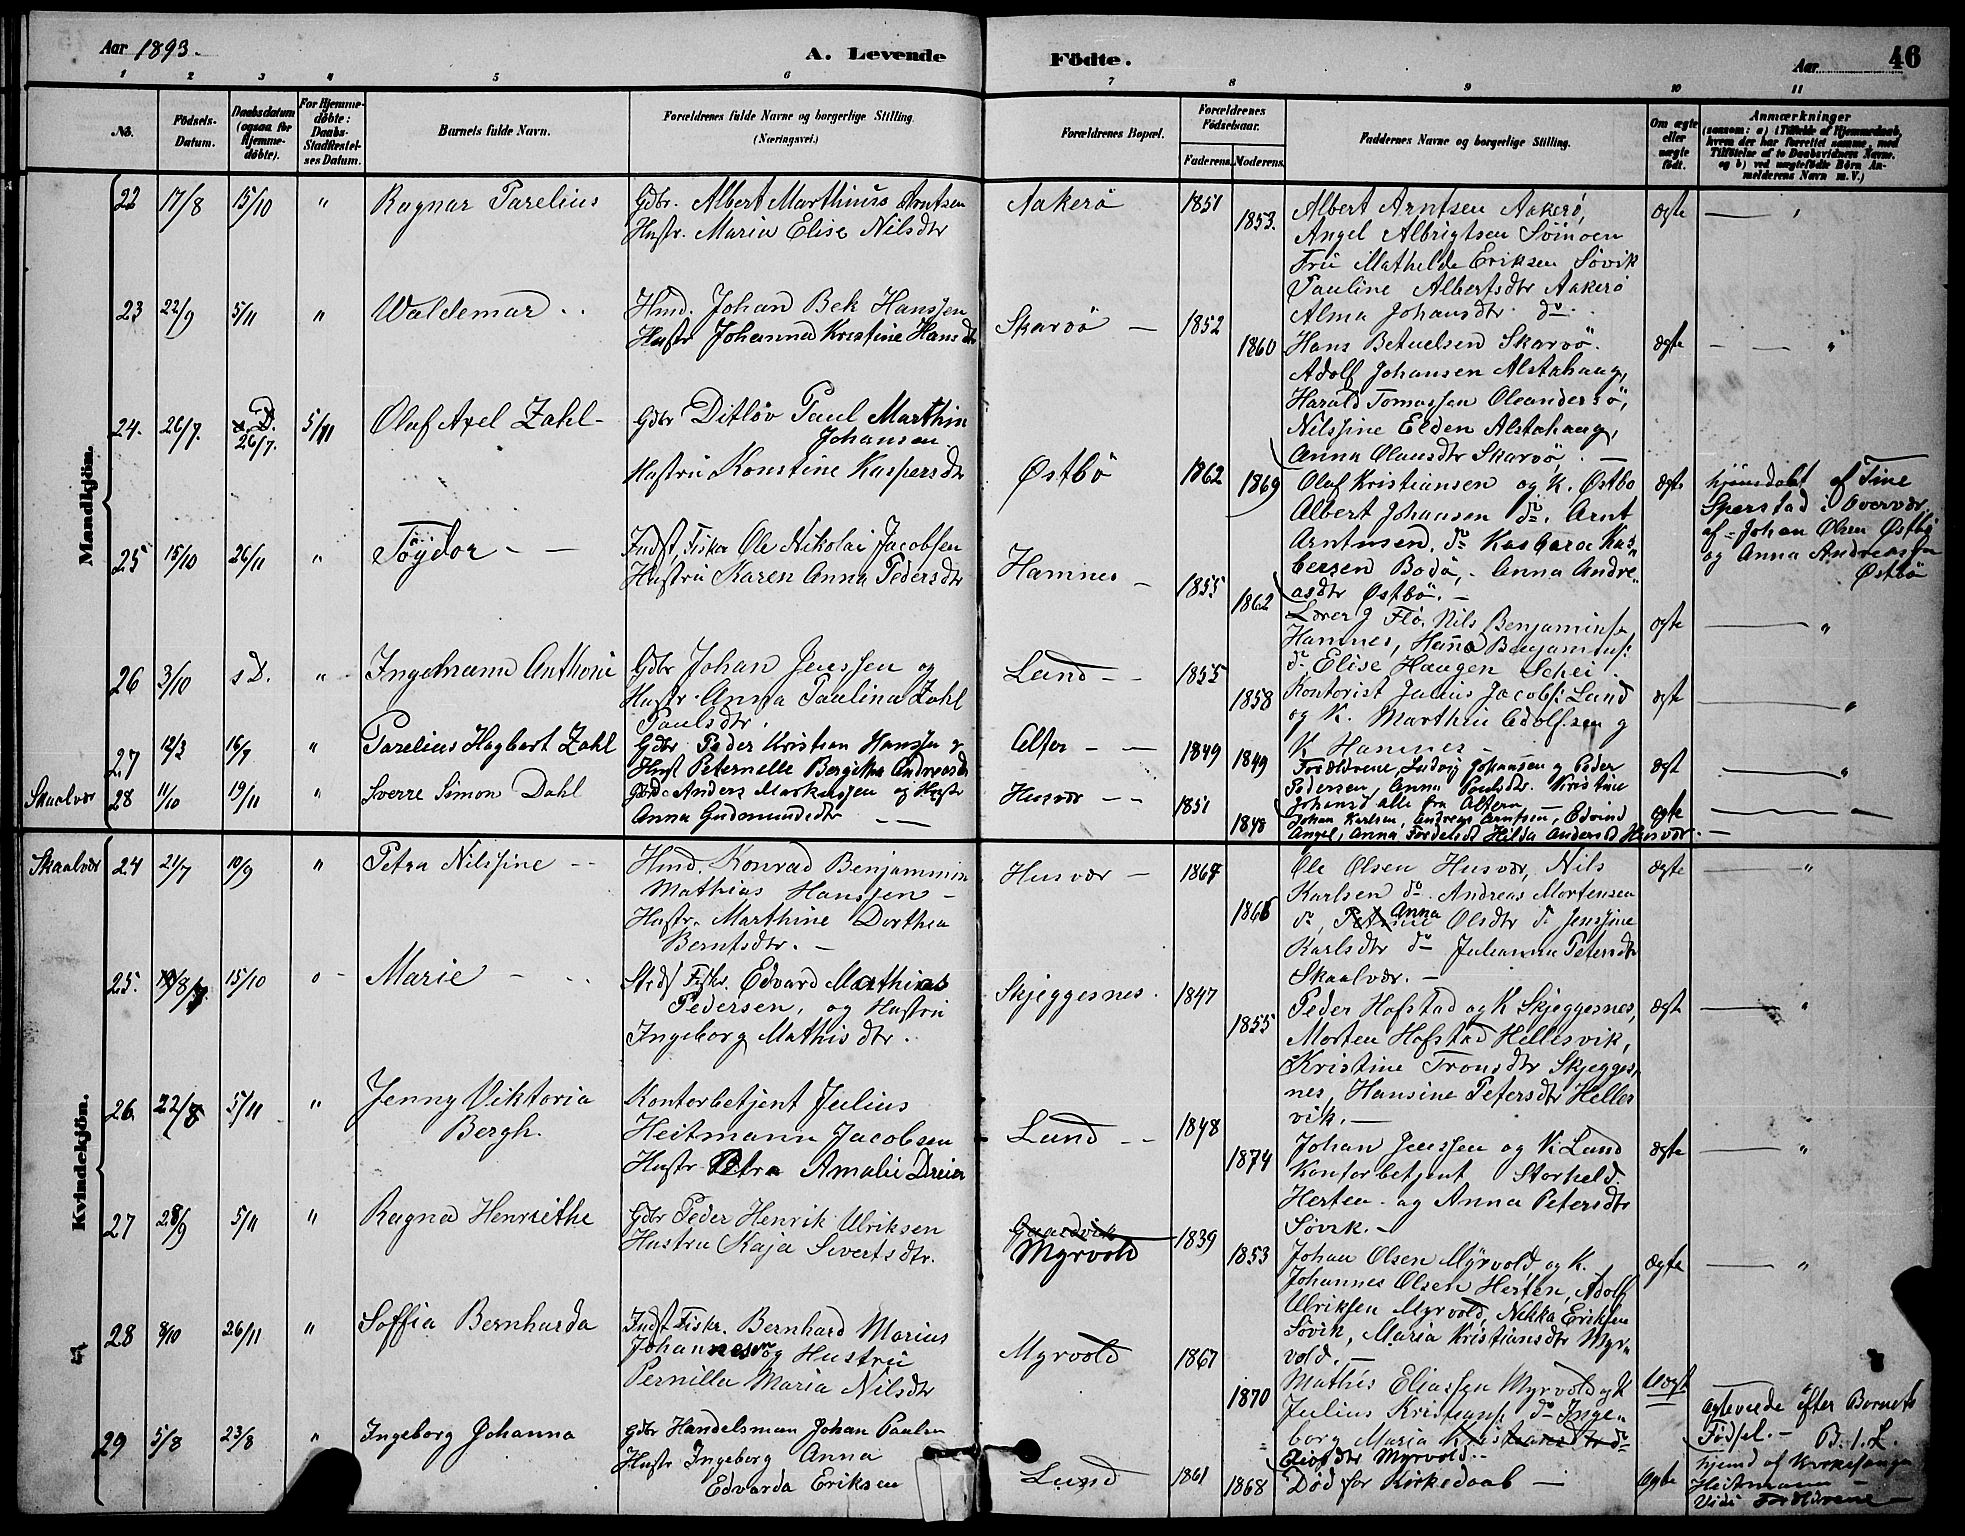 Aar 1893.
A. Levende
Födte.
Aar
46
1 2 3 4 5 6 7 8 9 10 11
No.
Födsels-Datum.
Daabsdatum (ogsaa for Hjemme-döbte).
For Hjemme-döbte: Daabs-Stadfæstel-ses Datum.
Barnets fulde Navn.
Forældrenes fulde Navne og borgerlige Stilling (Næringsvei.)
Forældrenes Bopæl.
Forældrenes Födselsaar.
Faderens. Moderens.
Faddernes Navne og borgerlige Stilling.
Om ægte eller uægte födt.
Anmærkninger
(saasom: a) i Tilfælde af Hjemmedaab,
hvem der har forrettet samme, med
Tilföielse af to Daabsvidners Navne,
og b) ved uægtefödte Börn An-
melderens Navn m. V.)
Mandkjön.
22 17/8 15/10 " Ragnar Parelius
Gdbr. Albert Marthinus Arntsen
Hustr. Maria Elise Nilsdtr
Aakerö 1851 1853.
Albert Arntsen Aakerö,
Angel Albrigtsen Svinöen
Fru Mathilde Eriksen Sövik
Pauline Albertsdtr Aakerö
Alma Johansdtr do
ægte
23 22/9 5/11 " Waldemar
Hmd. Johan Bek Hanssen
Hustr Johanna Kristine Hansdtr
Skarvö 1852 1860
Hans Betuelsen Skarvö.
Adolf Johansen Alstahaug,
Harald Tomassen Oleandersö,
Nilssine Elden Alstahaug,
Anna Olausdtr Skarvö
ægte "
24. 26/7. s. D. 26/7. 5/11 Oluf Axel Zahl
Gdbr Ditløv Paul Marthin
Johansen
Hustru Konstine Kaspersdtr
Østbö 1862 1869
Oluf Kristiansen og K. Østbö
Albert Johansen do. Arnt
Arntnsen do Kasbara Kas-
bersen Bodö, Anna Andre-
asdtr Østbö.
ægte
hjemdøbt af Tine
Sperstad i Overvær
af Johan Olsen Østbö
og Anna Andreassen
Østbö
25 15/10 26/11 " Töydor
Indst. Fisker Ole Nikolai Jacobsen
Hustru Karen Anna Pedersdtr
Hamnes 1855 1862
Lærer J Flö, Nils Benjamins.
Hamnes, Hanna Benjamins:
do Elise Haugen Schei.
ægte "
26 3/10 s D. " Ingemann Anthoni
Gdbr Johan Jenssen og
Hustr. Anna Paulina Zahl
Paulsdtr.
Lund 1855 1858
Kontorist Julius Jacobs: Lund
og K. Marthin Adolfsen og
K Hamnes
ægte "
27 12/3 16/7 " Parelius Hagbart Zahl
Gdbr. Peder Kristian Hanssen &
Hust Peternelle Bergitha Andreasdt
Alter 1849 1849
Forældrene, Ludvig Johansen og Peder
Pedersen, Anna Paulsdtr. Kristine
Johansd alle fra Altern
ægt "
Skaalvær 28 11/10 19/11 " Sverre Simon Dahl
Gbd. Anders Markussen og Hustr
Anna Gudmundsdtr
Husvær 1851 1848
Johan Karlsen, Andreas Arntsen, Edvind
Angel, Anna Tordelsd Hilda Andersd Husvær.
ægte
Kvindekjön.
Skaalvær 24 21/7 10/9 " Petra Nilssine
Hmd. Konrad Benjammin
Mathias Hanssen
Hustr. Marthine Dorthea
Berntsdtr.
Husvær 1867 1866
Ole Olsen Husvær, Nils
Karlsen do Andreas Mortensen
do, Anna Olsdtr do Jenssine
Karlsdtr do Julianna Petersdtr
Skaalvær.
ægte "
25. 15/10 Marie
Fisker. Edvard Mathias
Pedersen, og Hustru
Ingeborg Mathisdtr.
Skjeggesnes. 1847 1855
Peder Hofstad og K Skjeggesnes,
Morten Hofstad Hellesvik,
Kristine Tronsdtr Skjegges-
nes, Hansine Petersdtr Helles
vik.
ægt "
26. 22/8 5/11 " Jenny Viktoria
Bergh.
Kontorbetjent Julius
Heitmann Jacobsen
Hustr. Petra Amalie Dreier
Lund 1848 1874
Johan Jenssen og K. Lund
Kontorbetjent Storheld.
Herten og Anna Petersdtr
Søvik.
ægte "
27 28/9 5/11 " Ragna Henriethe
Gdbr Peder Henrik Ulriksen
Hustru Kaja Sivertsdtr.
Gaardvik
Myrvold 1839 1853
Johan Olsen Myrvold, og K.
Johannes Olsen Herten, Adolf
Ulriksen Myrvold, Nekka Eriksen
Søvik, Maria Kristiansdtr Myr-
vold.
ægte "
28 8/10 26/11 " Soffia Bernharda
Indst Fiskr. Bernhard Marius
Johannesen og Hustru
Pernilla Maria Nilsdtr
Myrvold 1867 1870
Mathis Eliassen Myrvold og K
Julius Kristians: do Inge-
borg Maria Kristiansdtr do
Eliasdtr Myrvold.
Uægt
Ægteviede efter Barnets
Fødsel. B. 1. L.
29 5/8 23/8 " Ingeborg Johanna
Gdbr Handelsman Johan Paulsen
Hustr Ingeborg Anna
Edvarda Eriksen
Lund 1861 1868
Død før Kirkedaab
ægte
hjemd af Kirkesanger
Heitmann
Vidn Forældrene